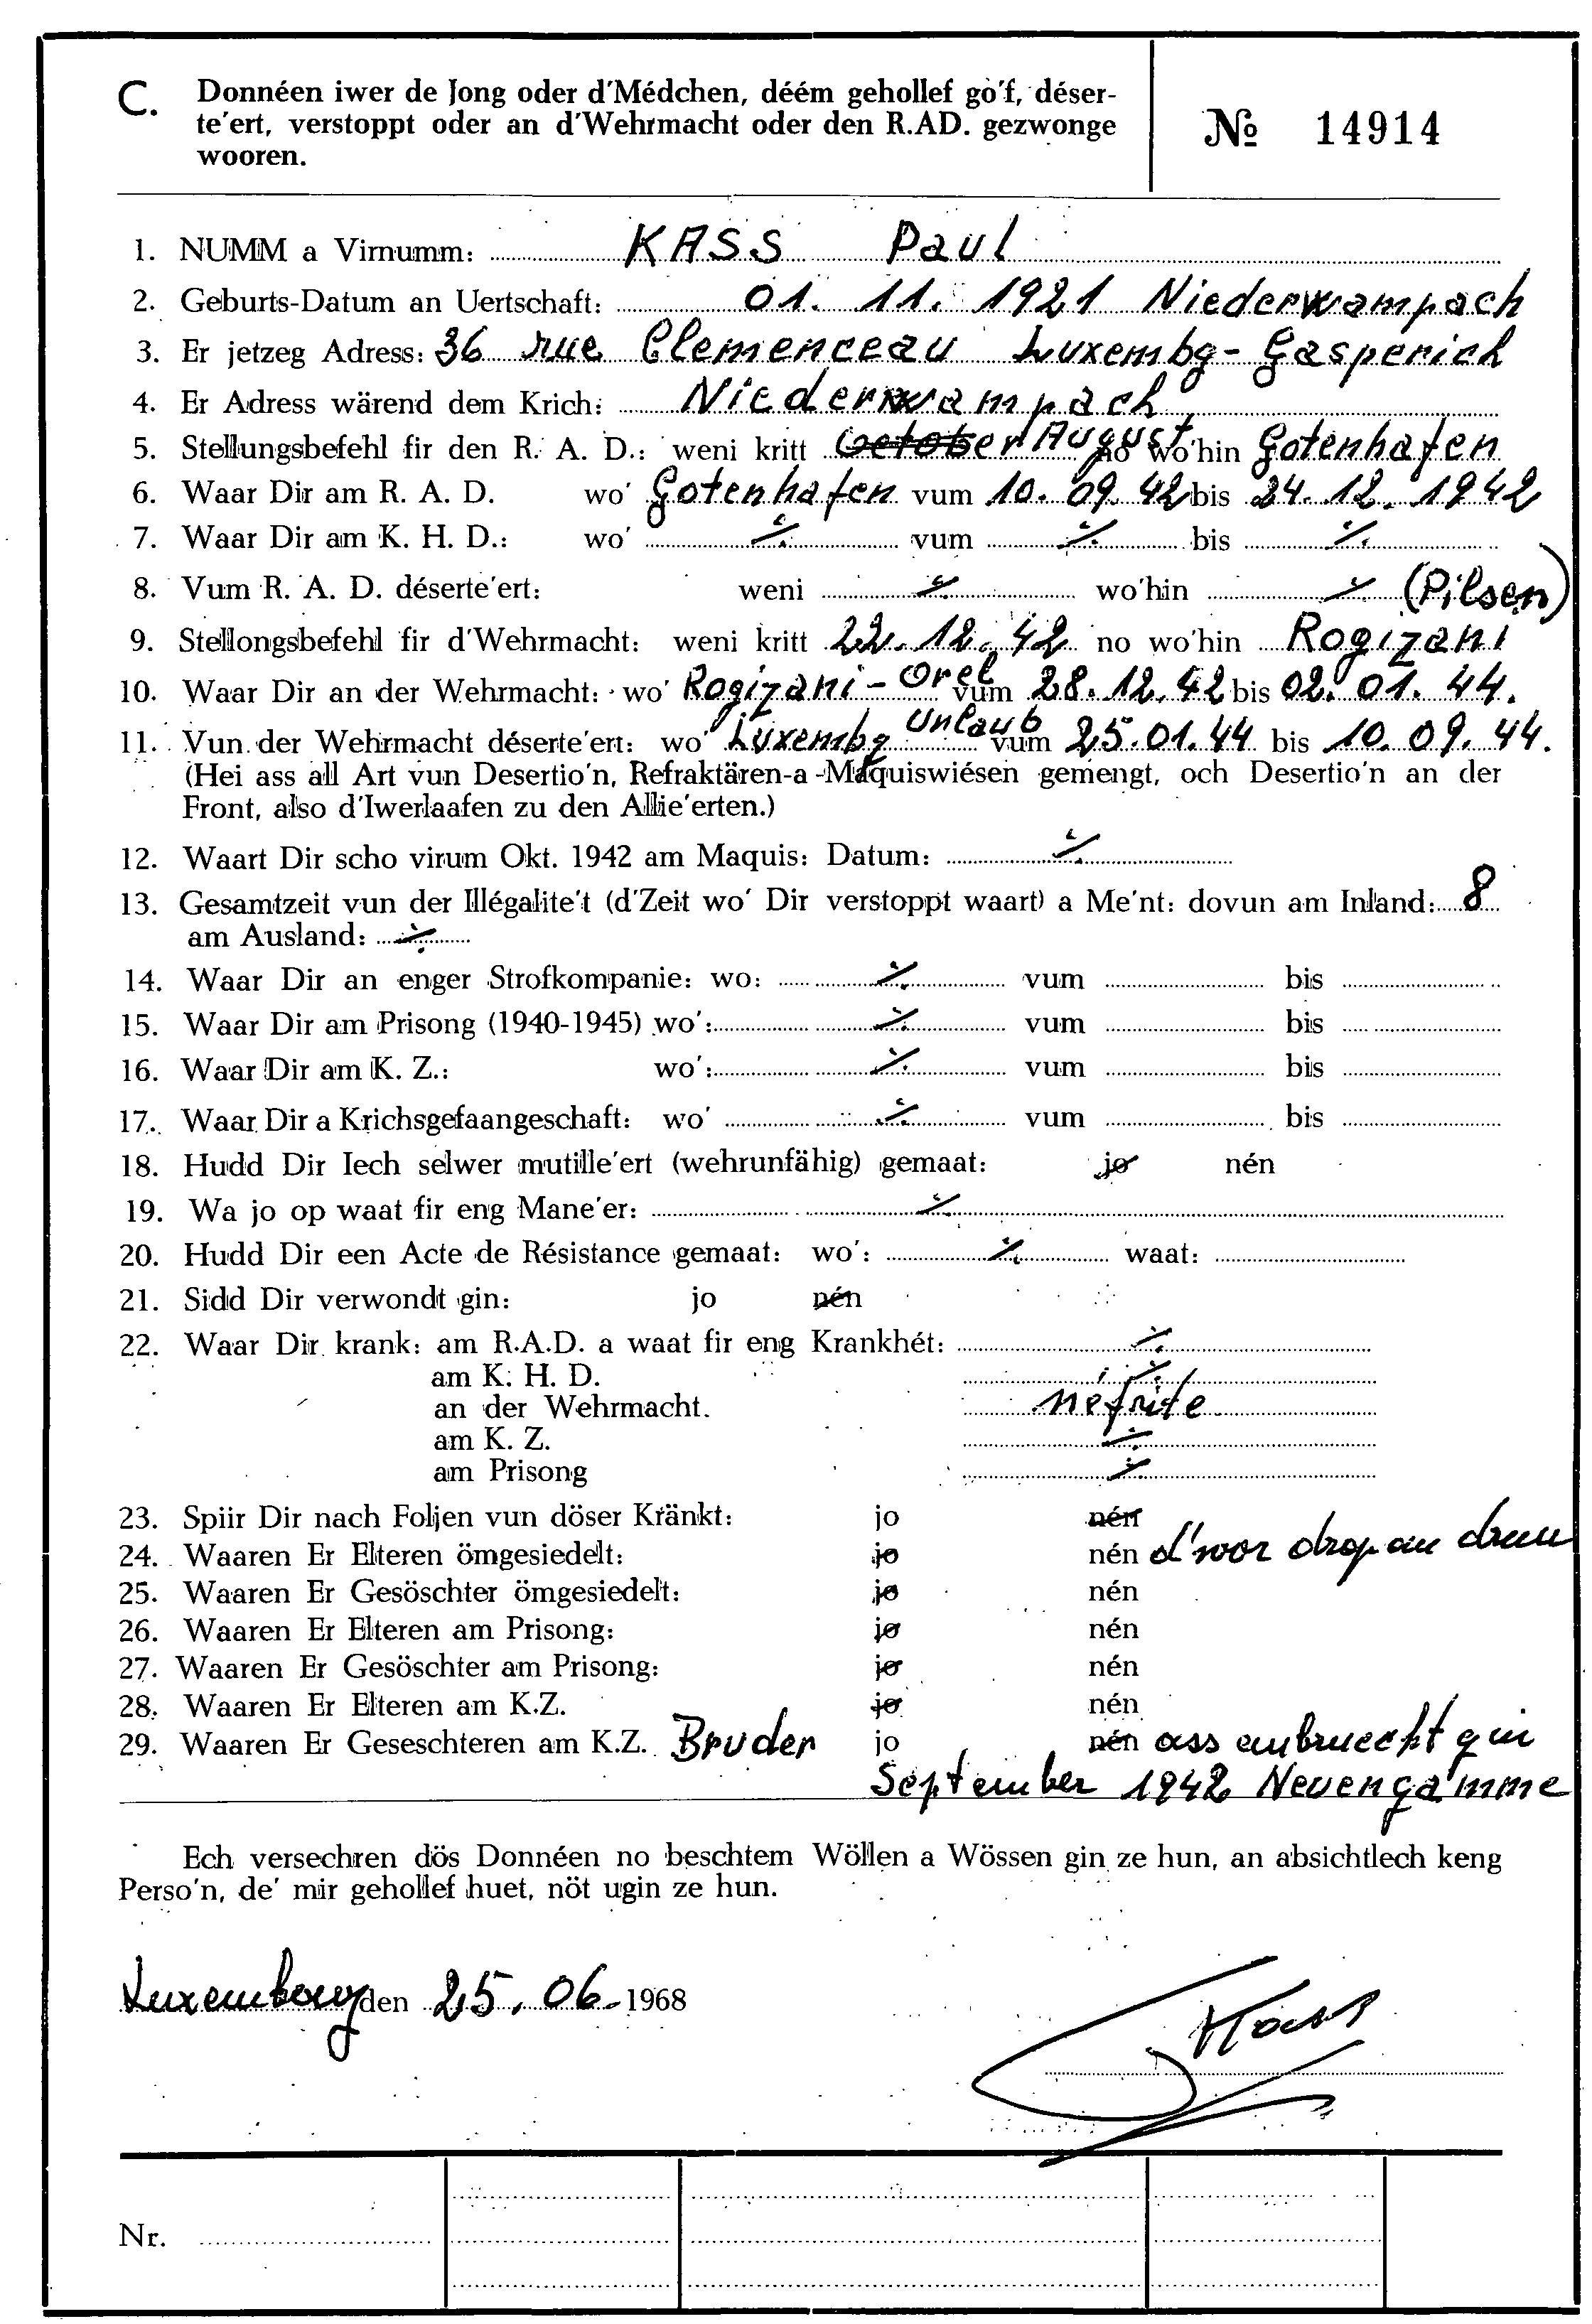 C. Donnéen iwer de Jong oder d'Médchen, déém gehollef go'f, déser-
te'ert, verstoppt oder an d'Wehrmacht oder den R.AD. gezwonge
wooren.
№ 14914
1. NUMM a Virnumm: KASS Paul
2. Geburts-Datum an Uertschaft: 01. 11. 1921 Niederwampach
3. Er jetzeg Adress: 36 rue Clemenceau Luxembg-Gasperich
4. Er Adress wärend dem Krich: Niederwampach
5. Stellungsbefehl fir den R. A. D.: weni kritt October August no wo'hin Gotenhafen
6. Waar Dir am R. A. D. wo' Gotenhafen vum 10. 09. 42 bis 24. 12. 1942
7. Waar Dir am K. H. D.: wo' ./. vum ./. bis ./.
8. Vum R. A. D. déserte'ert: weni ./. wo'hin ./. (Pilsen)
9. Stellongsbefehl fir d'Wehrmacht: weni kritt 22. 12. 42 no wo'hin Rogizani
10. Waar Dir an der Wehrmacht: wo' Rogizani - Orel vum 28. 12. 42 bis 02. 01. 44.
11. Vun der Wehrmacht déserte'ert: wo' Luxembg Urlaub vum 25.01.44 bis 10. 09. 44.
(Hei ass all Art vun Desertio'n, Refraktären-a-Maquiswiésen gemengt, och Desertio'n an der
Front, also d'Iwerlaafen zu den Allie'erten.)
12. Waart Dir scho virum Okt. 1942 am Maquis: Datum: ./.
13. Gesamtzeit vun der Illégalite't (d'Zeit wo' Dir verstoppt waart) a Me'nt: dovun am Inland: 8
am Ausland: ./.
14. Waar Dir an enger Strofkompanie: wo: ./. vum bis
15. Waar Dir am Prisong (1940-1945) wo': ./. vum bis
16. Waar Dir am K. Z.: wo': ./. vum bis
17. Waar Dir a Krichsgefaangeschaft: wo' ./. vum bis
18. Hudd Dir Iech selwer mutille'ert (wehrunfähig) gemaat: jo nén
19. Wa jo op waat fir eng Mane'er: ./.
20. Hudd Dir een Acte de Résistance gemaat: wo': ./. waat:
21. Sidd Dir verwondt gin: jo nén
22. Waar Dir krank: am R.A.D. a waat fir eng Krankhét: ./.
am K. H. D. ./.
an der Wehrmacht. néfrite
am K. Z. ./.
am Prisong ./.
23. Spiir Dir nach Foljen vun döser Kränkt: jo nén
24. Waaren Er Elteren ömgesiedelt: jo nén d'wor drop an drun
25. Waaren Er Gesöschter ömgesiedelt: jo nén
26. Waaren Er Elteren am Prisong: jo nén
27. Waaren Er Gesöschter am Prisong: jo nén
28. Waaren Er Elteren am K.Z. jo nén
29. Waaren Er Geseschteren am K.Z. Bruder jo nén ass embruecht gin
September 1942 Neuengamme
Ech versechren dös Donnéen no beschtem Wöllen a Wössen gin ze hun, an absichtlech keng
Perso'n, de' mir gehollef huet, nöt ugin ze hun.
Luxembourg den 25. 06. 1968
Kass
Nr.